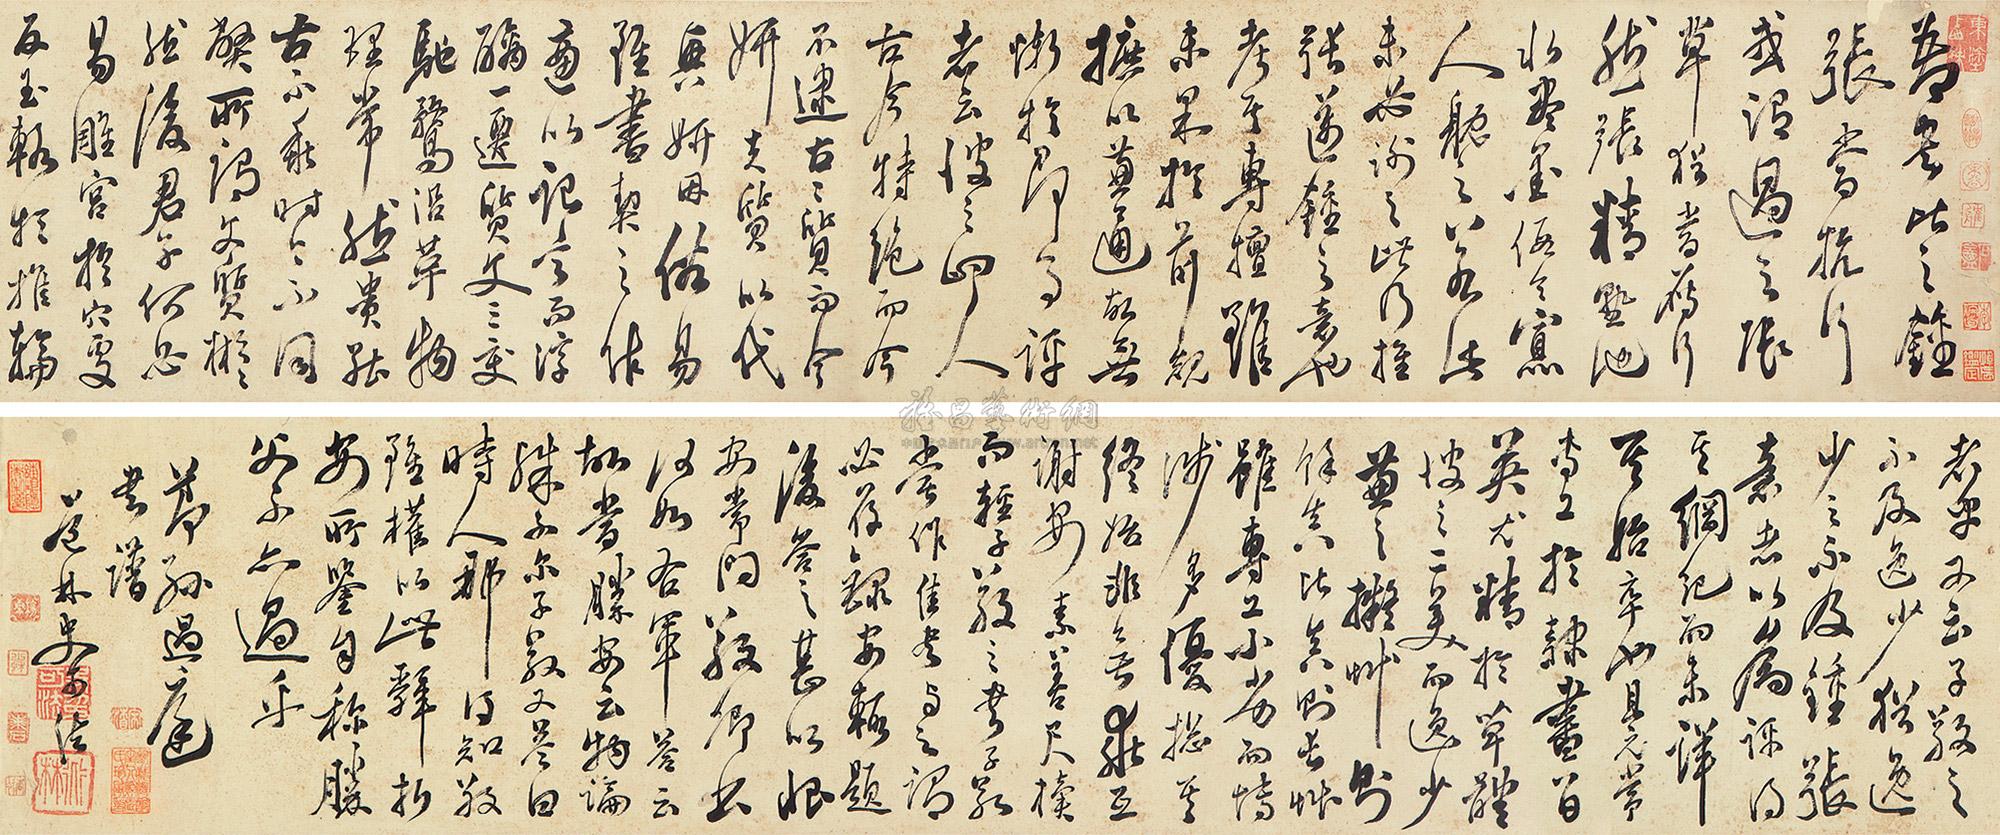 吾書比之鍾
張當抗行
或謂過之張
草猶當雁行
然張精熟池
水盡墨假令寡
人耽之若此
未必謝之此乃推
張邁鍾之意也
考其專擅雖
未果於前規
摭以兼通故無
慚於即事評
者云彼之四人
古今特絕而今
不逮古古質而今
妍夫質以代
興妍因俗易
雖書契之作
適以記言而淳
醨一遷質文三變
馳騖沿革物
理常然貴能
古不乖時今不同
弊所謂文質彬彬
然後君子何必
易雕宮於穴處
反玉輅於椎輪
者乎又云子敬之
不及逸少猶逸
少之不及鍾張
意者以為評得
其綱紀而未詳
其始卒也且元常
專工於隸書伯
英尤精於草體
彼之二美而逸少
兼之擬草則
餘真比真則長草
雖專工小劣而博
涉多優總其
終始匪無乖互
謝安素善尺牘
而輕子敬之書子敬
嘗作佳書與之謂
必存錄安輒題
後答之甚以恨
安嘗問敬卿書
何如右軍答云
故當勝安云物論
殊不爾子敬又答曰
時人那得知敬
雖權以此辭折
安所鑒自稱勝
父不亦過乎
節孫過庭
書譜
史可法